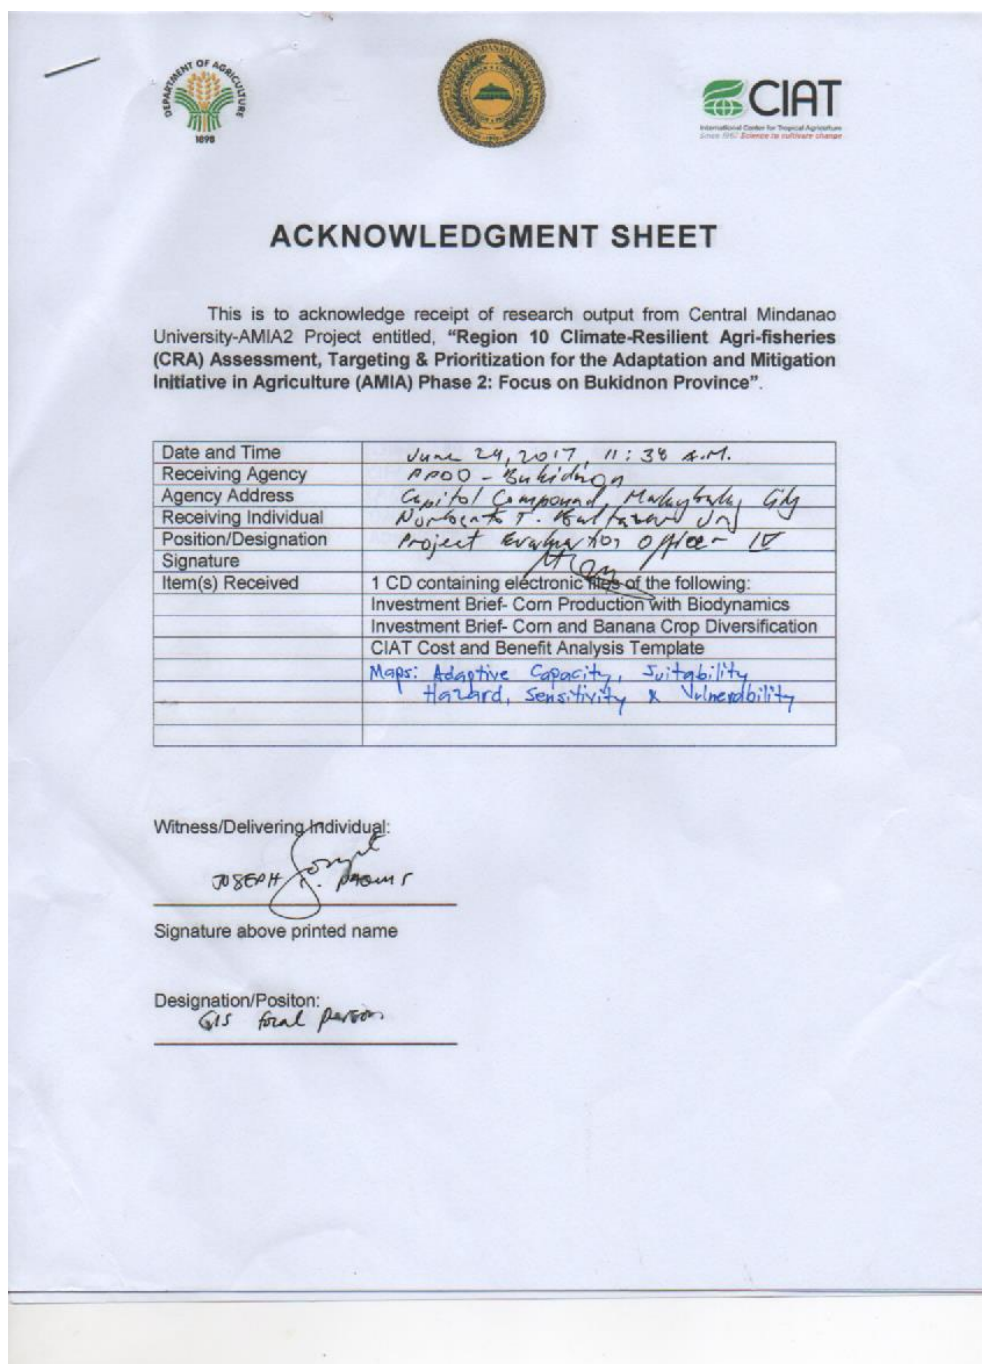 DEPARTMENT OF AGRICULTURE
1898
CIAT
International Center for Tropical Agriculture
Since 1967 Science to cultivate change
ACKNOWLEDGMENT SHEET
This is to acknowledge receipt of research output from Central Mindanao
University-AMIA2 Project entitled, “Region 10 Climate-Resilient Agri-fisheries
(CRA) Assessment, Targeting & Prioritization for the Adaptation and Mitigation
Initiative in Agriculture (AMIA) Phase 2: Focus on Bukidnon Province”.
Date and Time June 29, 2017, 11:38 A.M.
Receiving Agency PPDO - Bukidnon
Agency Address Capitol Compound, Malaybalay City
Receiving Individual T.
Position/Designation Project Evaluation Officer - IV
Signature
Item(s) Received 1 CD containing electronic files of the following:
Investment Brief- Corn Production with Biodynamics
Investment Brief- Corn and Banana Crop Diversification
CIAT Cost and Benefit Analysis Template
Maps: Adaptive Capacity, Suitability
Hazard, Sensitivity & Vulnerability
Witness/Delivering Individual:
JOSEPH
Signature above printed name
Designation/Positon:
GIS focal person